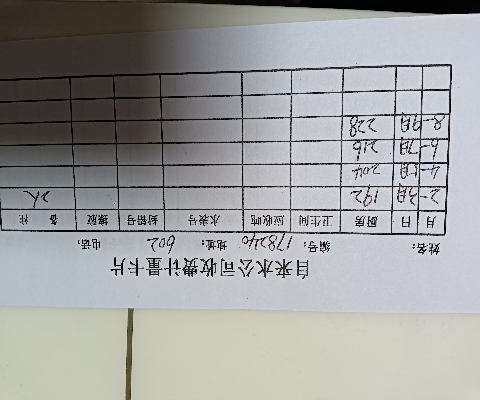 自来水公司收费计量卡片
姓名： 编号：178240 地址：602 电话：
月 日 厨房 卫生间 应收吨 水表号 封铅号 橡胶 备 注
2-3月 192 2人
4-5月 204
6-7月 216
8-9月 228